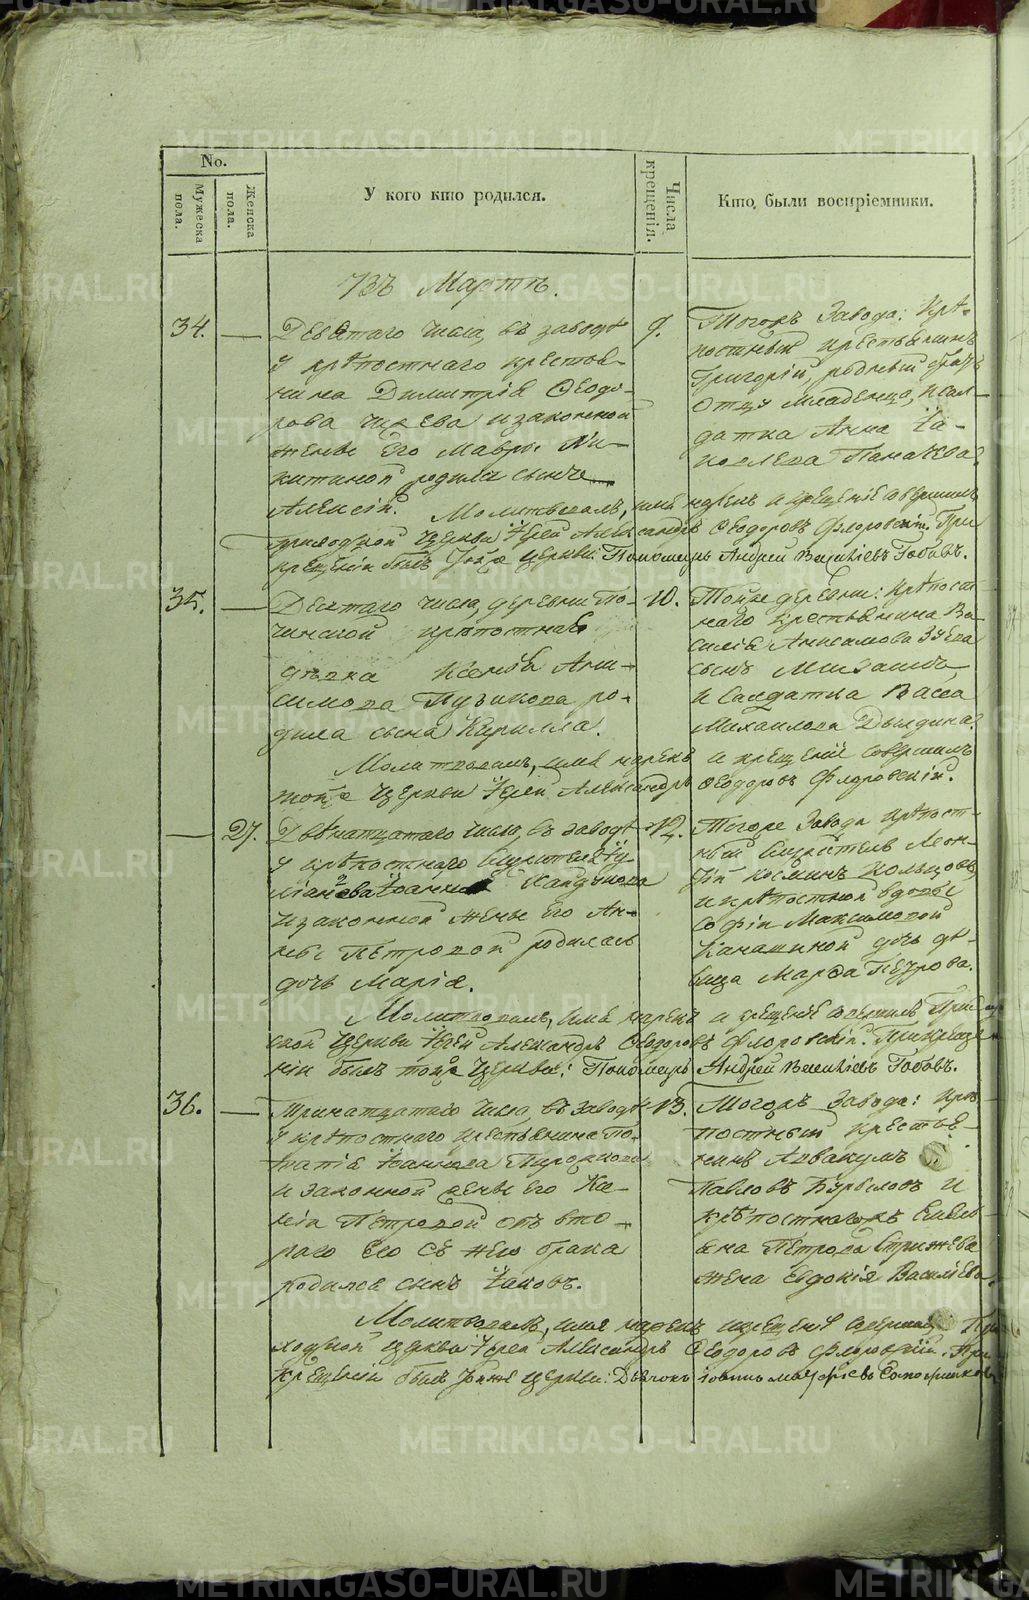 No.
Мужеска пола.
Женска пола.
У кого кто родился.
Числа крещенія.
Кто были воспріемники.
Въ Мартѣ.
34.
Девятаго числа, въ заводѣ
у крѣпостнаго крестья-
нина Димитрія Ѳеодо-
рова и законной
жены его Мавры Ни-
китиной родился сынъ
Алексій.
9.
Тогожъ Завода: Крѣ-
постный крестьянинъ
Григорій, родный братъ
Отцу младенца, и сол-
датка Анна Іа-
ковлева
Молитвовалъ, имя нарекъ и крещеніе совершилъ
приходской церкви Іерей Александръ Ѳеодоровъ Флоровскій. При
крещеніи былъ тойже церкви Пономарь Андрей Васильевъ Гобовъ.
35.
Десятаго числа, деревни По-
чинской крѣпостная
дѣвка Ксенія Ани-
симова Пузикова ро-
дила сына Кирилла.
10.
Тойже деревни: крѣпост-
наго крестьянина Ва-
силія Анисимова Зуева
сынъ Михаилъ,
и Солдатка Васса
Михаилова Дылдина.
Молитвовалъ, имя нарекъ и крещеніе совершилъ
тойже церкви Іерей Александръ Ѳеодоровъ Флоровскій.
27.
Двѣнатцатаго числа, въ заводѣ
у крѣпостнаго служителя Іу-
ліана Іоаннова
и законной жены его Ан-
ны Петровой родилась
дочь Марія.
12.
Тогоже Завода крѣпост-
ный служитель Леон-
тій Косминъ Кольцовъ,
и крѣпостной вдовы
Софіи Максимовой
Канашиной дочь дѣ-
вица Марѳа Петрова.
Молитвовалъ, имя нарекъ и крещеніе совершилъ Приход-
ской церкви Іерей Александръ Ѳеодоровъ Флоровскій. При креще-
ніи былъ тойже церкви: Пономарь Андрей Васильевъ Гобовъ.
36.
Тринатцатаго числа, въ заводѣ
у крѣпостнаго крестьянина По-
Іоаннова
и законной жены его
Петровой отъ вто-
раго его съ нею брака
родился сынъ Іаковъ.
13.
Тогожъ Завода: крѣ-
постный крестья-
нинъ Аввакумъ
Павловъ Бурыловъ и
крѣпостнагожъ
Петрова Стрижева
жена Евдокія Васильева.
Молитвовалъ, имя нарекъ и крещеніе совершилъ При-
ходской церкви Іерей Александръ Ѳеодоровъ Флоровскій. При
крещеніи былъ тойже церкви: Дьячокъ
METRIKI.GASO-URAL.RU